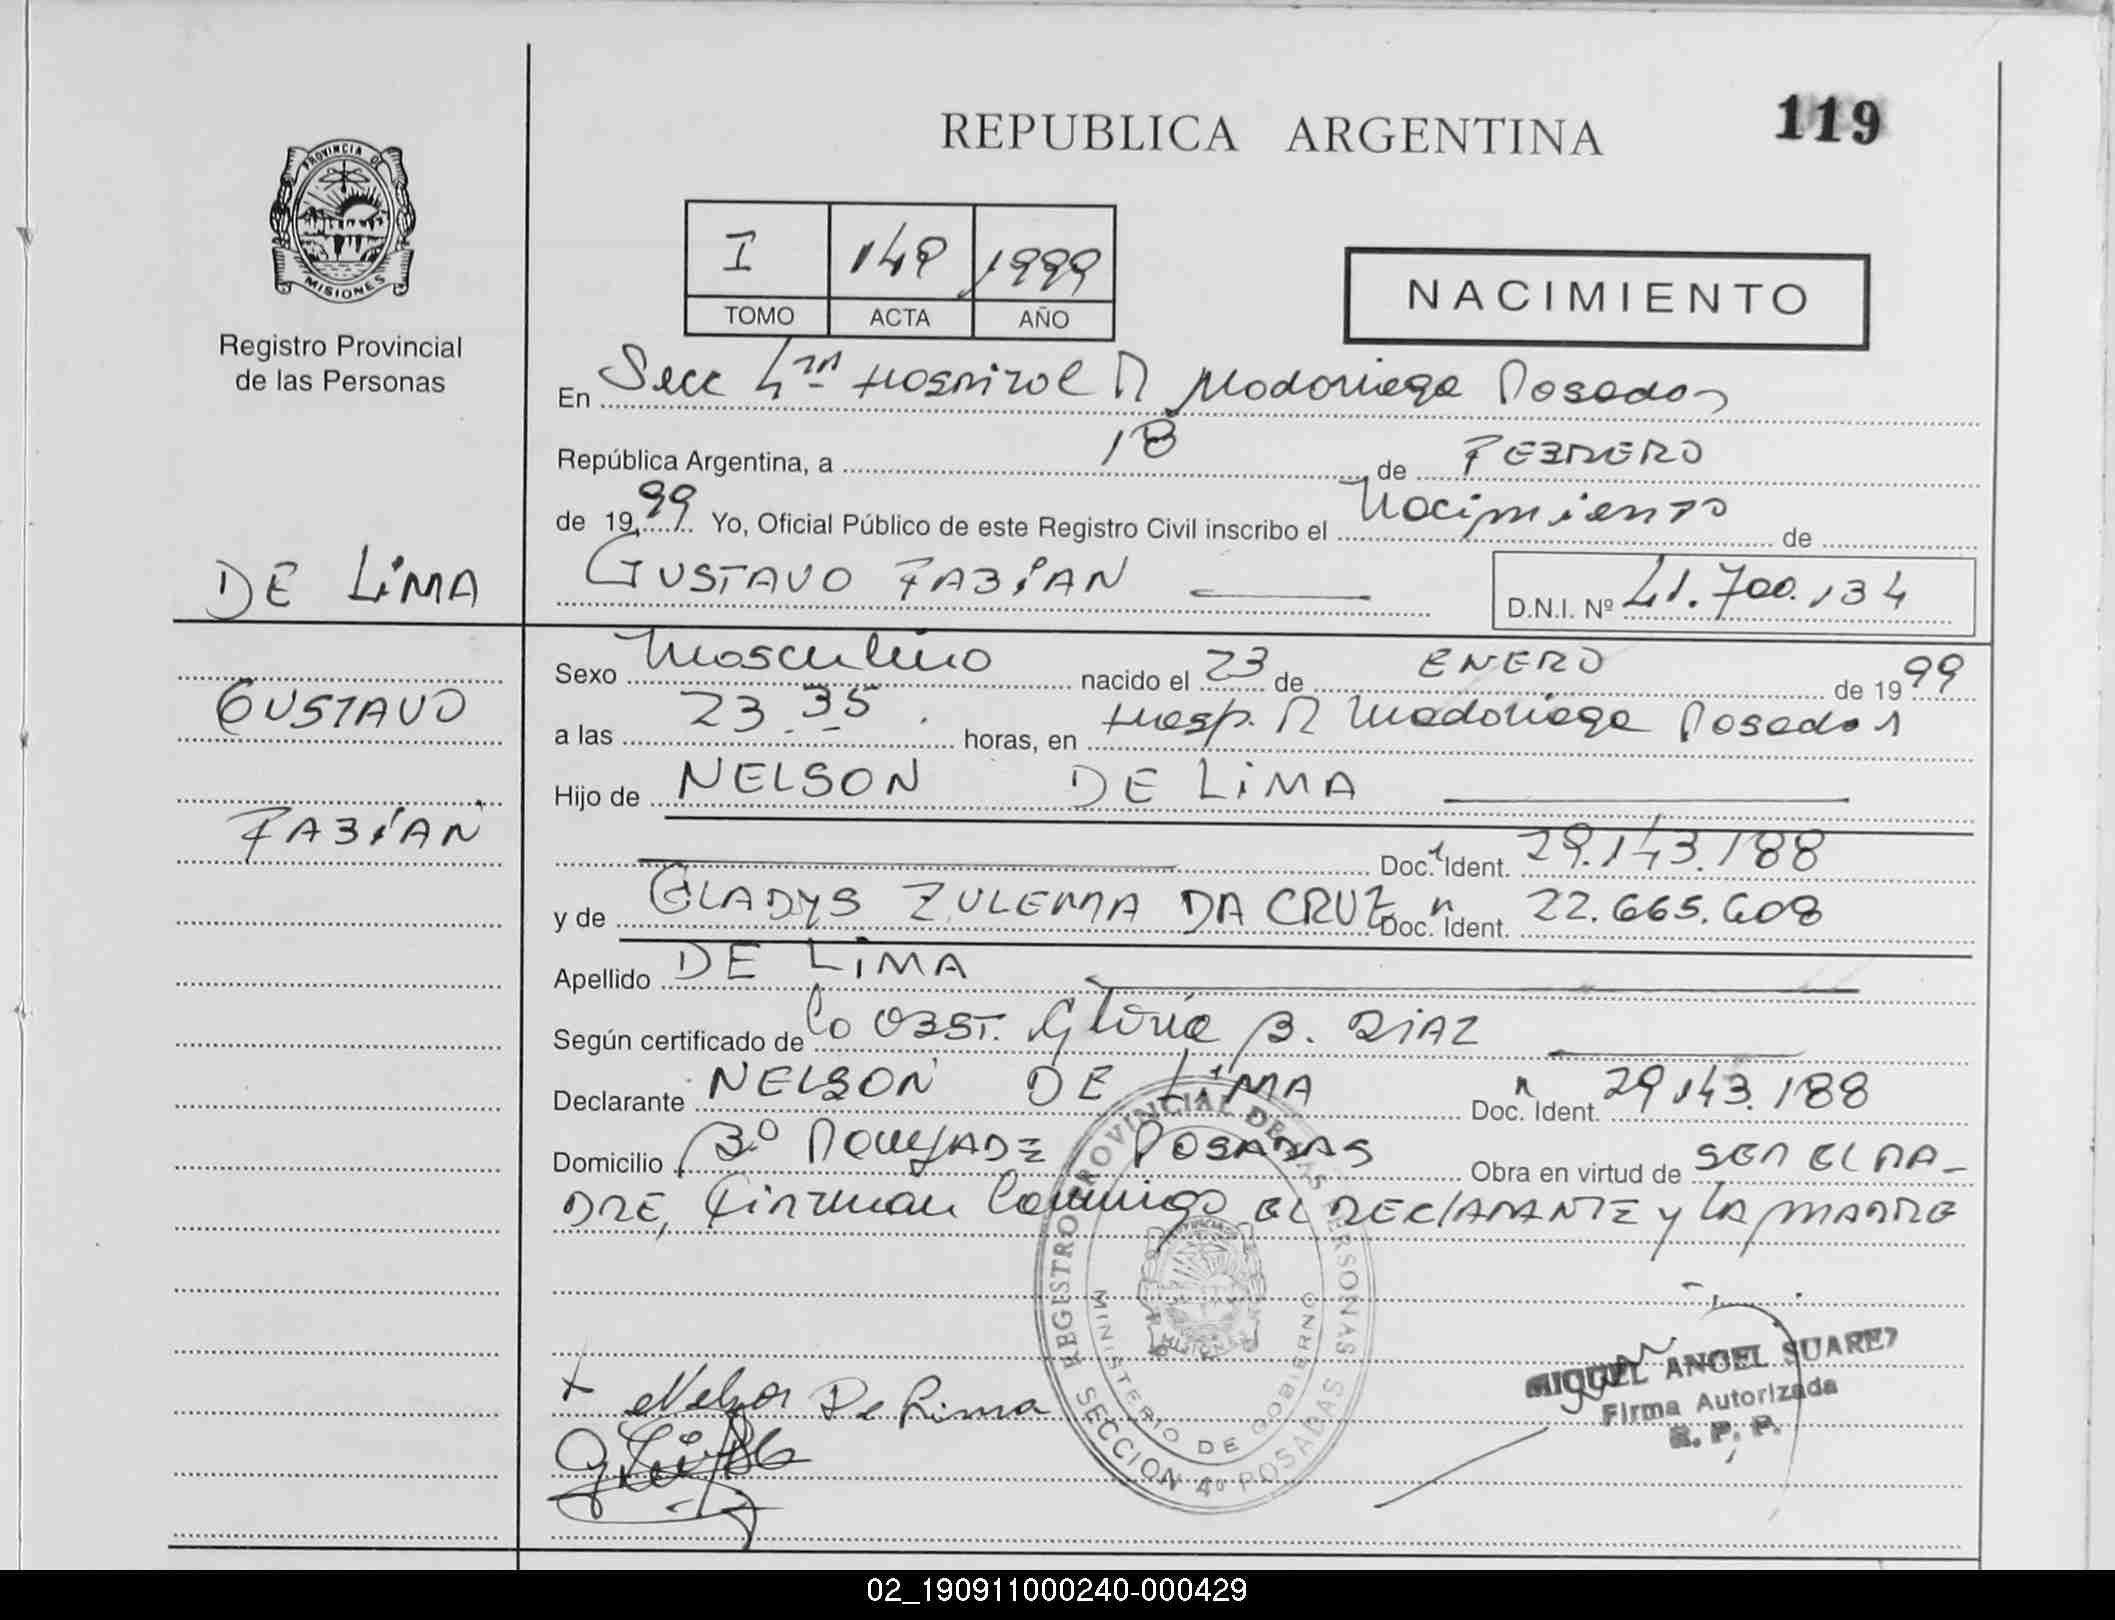 REPUBLICA ARGENTINA
119
PROVINCIA DE
MISIONES
Registro Provincial
de las Personas
I 149 1999
TOMO ACTA AÑO
NACIMIENTO
En Secc 4ta Hospital R Madariaga Posadas
República Argentina, a 18 de FEBRERO
de 1999 Yo, Oficial Público de este Registro Civil inscribo el Nacimiento de
DE LIMA
GUSTAVO FABIAN
D.N.I. Nº 41.700.134
Sexo Masculino nacido el 23 de ENERO de 1999
GUSTAVO
a las 23 35 horas, en Hosp. R Madariaga Posadas
Hijo de NELSON DE LIMA
FABIAN
Doc. Ident. 29.143.188
y de GLADYS ZULEMA DA CRUZ Doc. Ident. 22.665.608
Apellido DE LIMA
Según certificado de la OBST. Gloria B. DIAZ
Declarante NELSON DE LIMA Doc. Ident. 29.143.188
Domicilio Bº POSADAS Obra en virtud de SER EL PA-
DRE, Firman Conmigo EL DECLARANTE y LA MADRE
REGISTRO PROVINCIAL DE LAS PERSONAS
MINISTERIO DE GOBIERNO
SECCION 4º POSADAS
Nelson De Lima
MIGUEL ANGEL SUAREZ
Firma Autorizada
R. P. P.
02_190911000240-000429